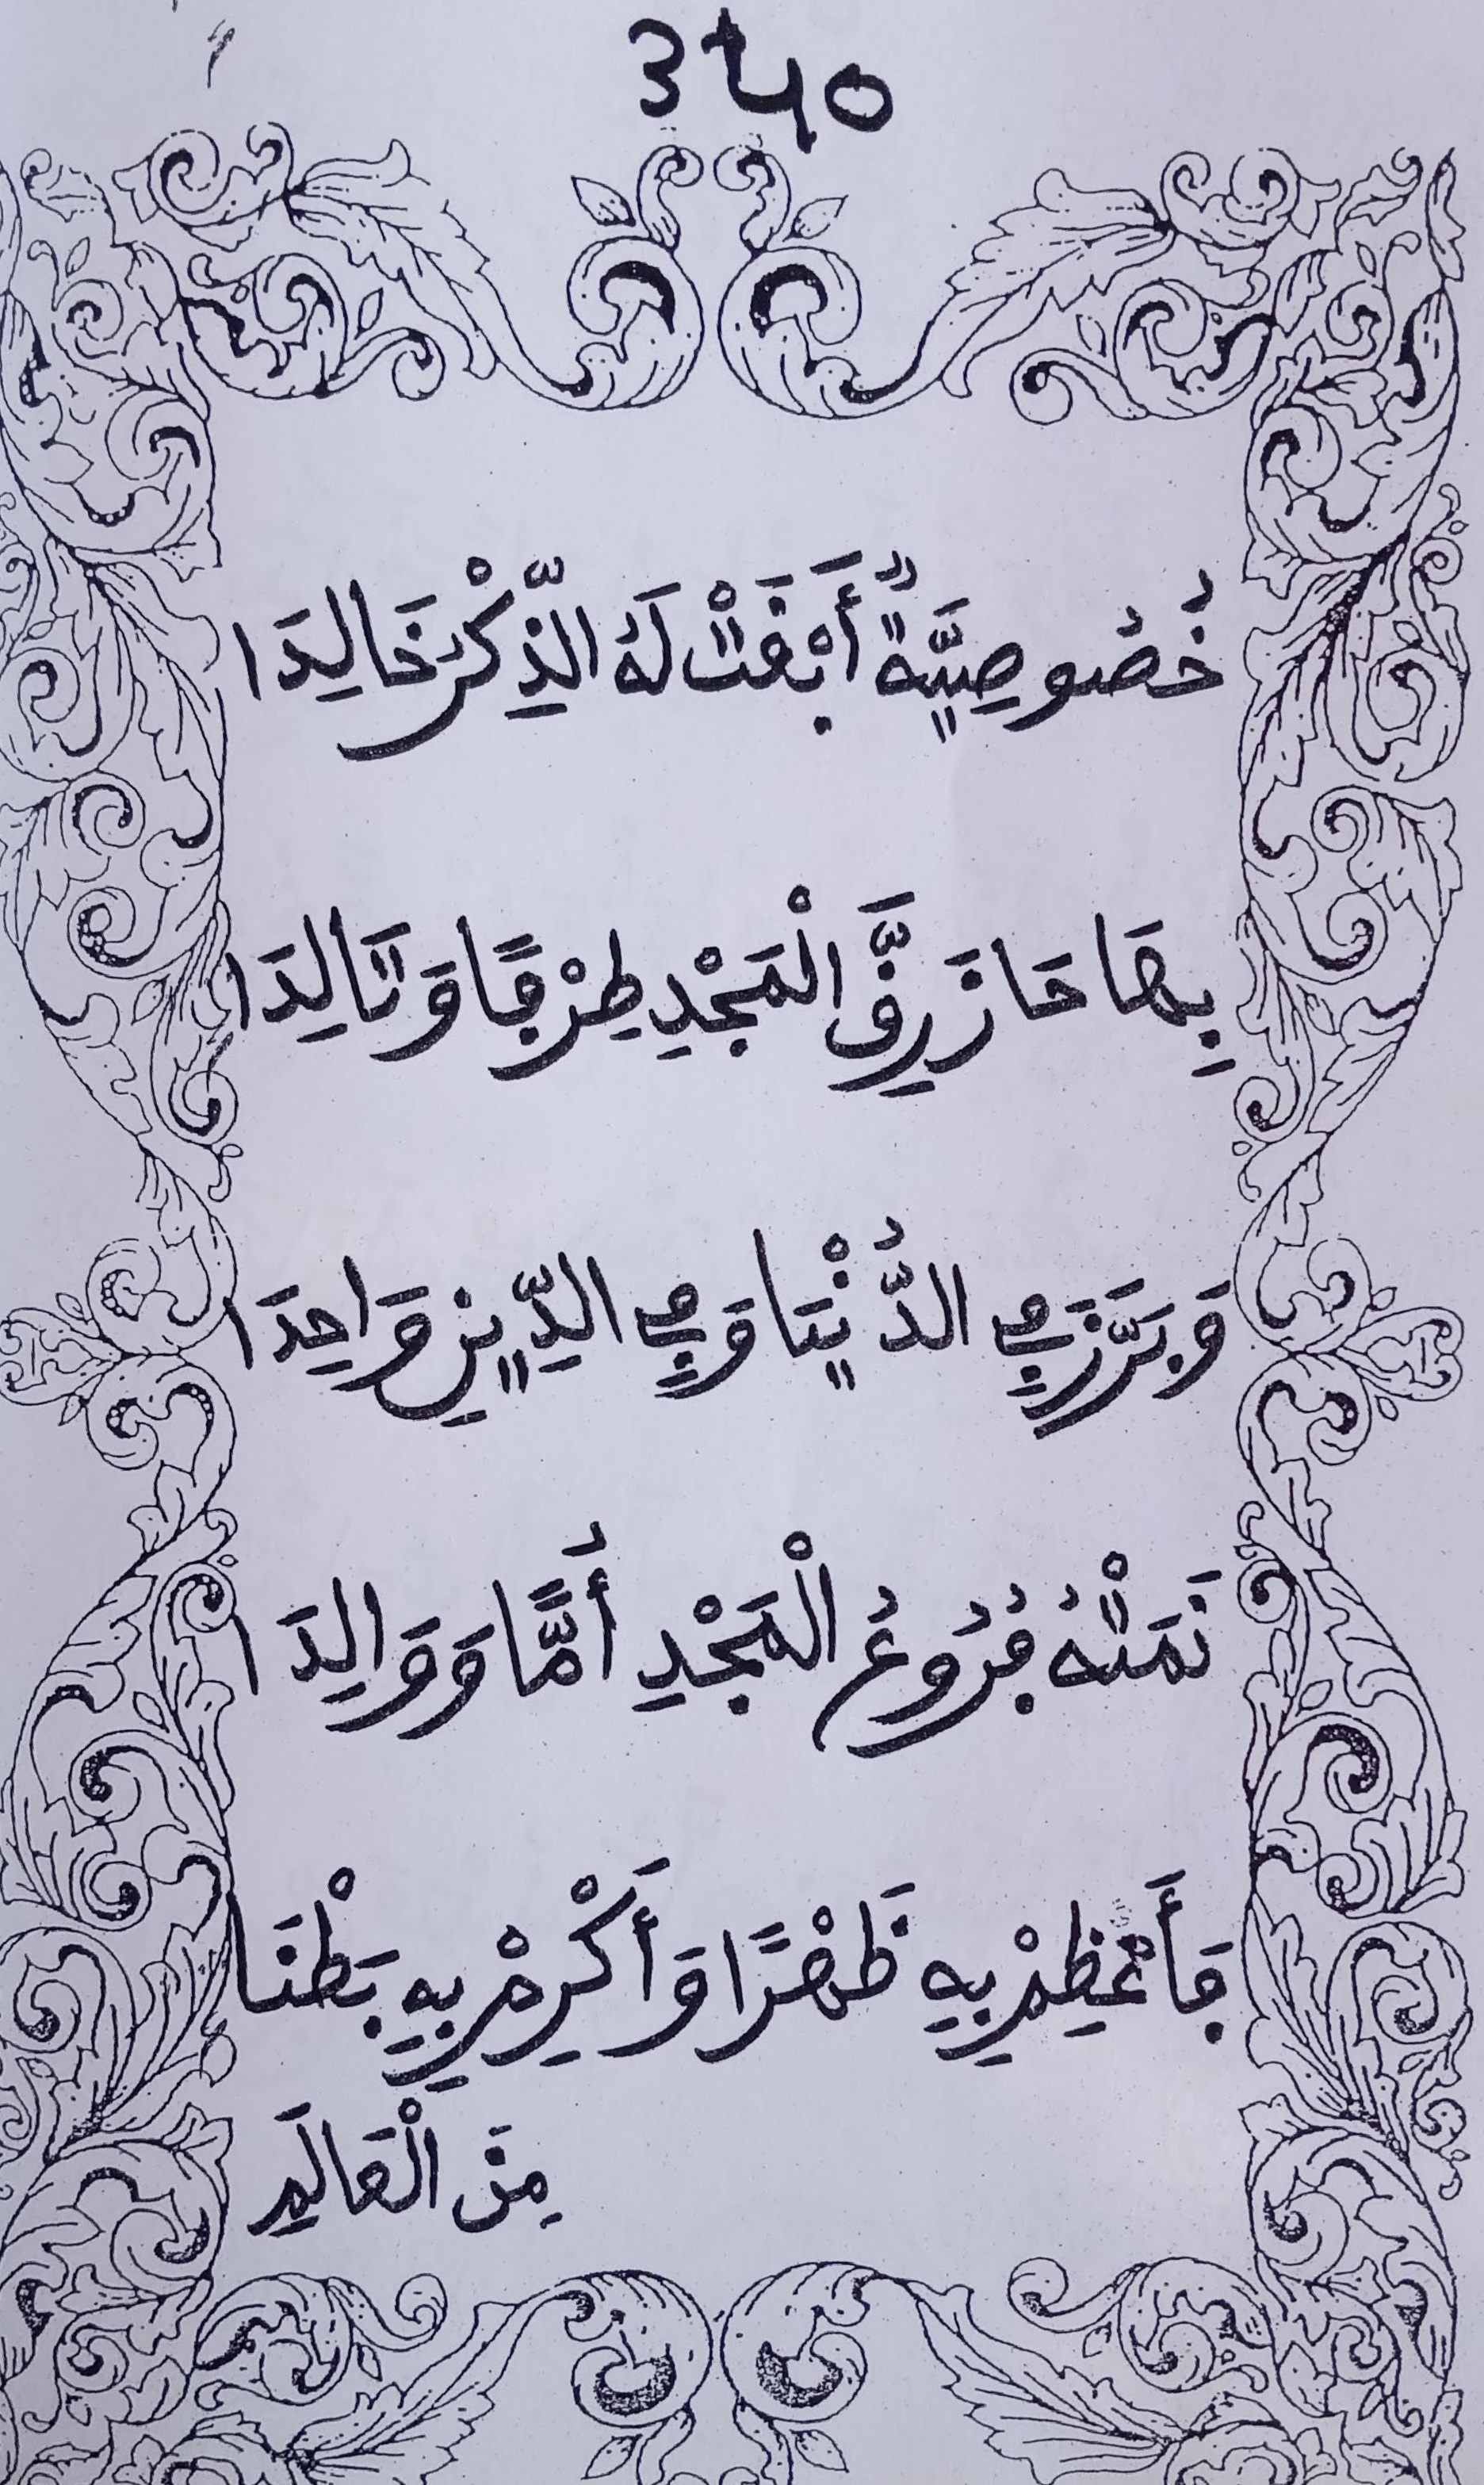 خُصُوصِيَّةٌ أَبْقَتْ لَهُ الذِّكْرَ خَالِدَا
بِهَا حَازَ رِقَّ الْمَجْدِ طِرْفًا وَتَالِدَا
وَبَرَّزَ فِي الدُّنْيَا وَفِي الدِّينِ وَاحِدَا
نَمَتْهُ فُرُوعُ الْمَجْدِ أُمًّا وَوَالِدَا
فَأَعْظِمْ بِهِ ظَهْرًا وَأَكْرِمْ بِهِ بَطْنَا
مِنَ الْعَالَمِ